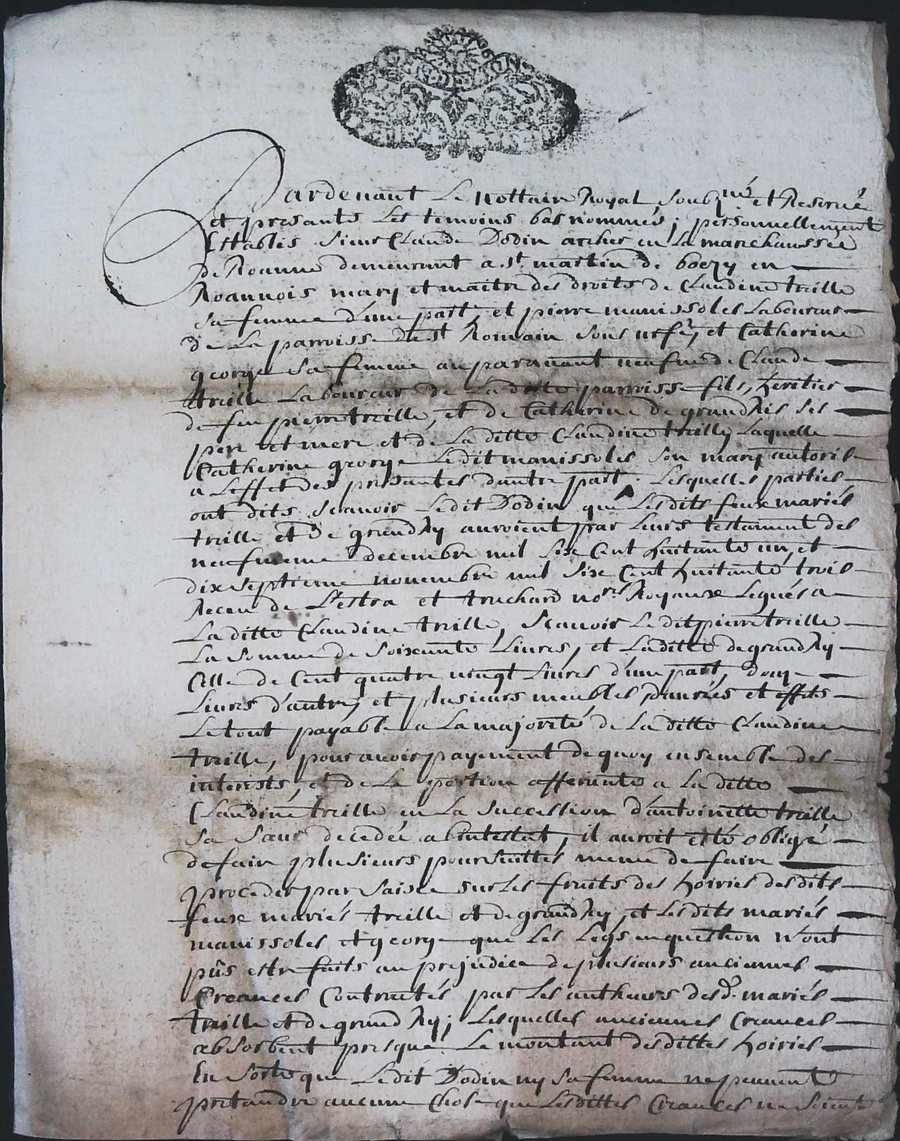 Pardevant Le nottaire Royal soubzné et Reservé
et presants Les temoins bas nommés, personnellement
Establis sieur Claude Dodin archer en La marechaussée
de Roanne demeurant a st martin de boezy en
Roannois mary et maitre des droits de Claudine treille
sa femme d'une part, et pierre manissoles Laboureur
de La parroisse de st Romain sous urfe, et Catherine
george sa femme auparavant neufve de Claude
treille Laboureur de La ditte parroisse fils, heritier
de feu pierre treille, et de Catherine de grandRis ses
pere et mere et de La ditte Claudine treille, Laquelle
Catherine george Ledit manissoles son mary autorise
a L'effet des presantes d'autre part. Lesquelles parties
ont dits scavoir Ledit Dodin que Lesdits feux mariés
treille et de grandRy auroient par Leurs testament des
neufvieme decembre mil six Cent huitante un, et
dix septieme novembre mil six Cent huitante trois
Receu de L'estra et truchard nores Royaux Legués a
La ditte Claudine treille, scavoir Ledit pierre treille
La somme de soixante Livres, et Laditte de grandRy
Celle de Cent quatre vingt Livres d'une part, douze
Livres d'autre, et plusieurs meubles danrées et effets
Le tout payable a La majorité de La ditte Claudine
treille, pour avoir payement de quoy ensemble des
interests, et de La portion afferente a La ditte
Claudine treille en La succession d'antoinette treille
sa sœur decedée abintestat, il auroit esté obligé
de faire plusieurs poursuittes meme de faire
proceder par saisie sur Les fruits des hoiries desdits
feux mariés treille et de grandRy, et Lesdits mariés
manissoles et george que Les Legs en question n'ont
pûs estre faits au prejudice de plusieurs anciennes
Creances Contractés par Les autheurs desd. mariés
treille et de grandRy, Lesquelles anciennes Creances
absorbent presque Le montant desdittes hoiries
En sorte que Ledit Dodin ny sa femme ne peuvent
pretandre aucune Chose que Lesdittes Creances ne soient